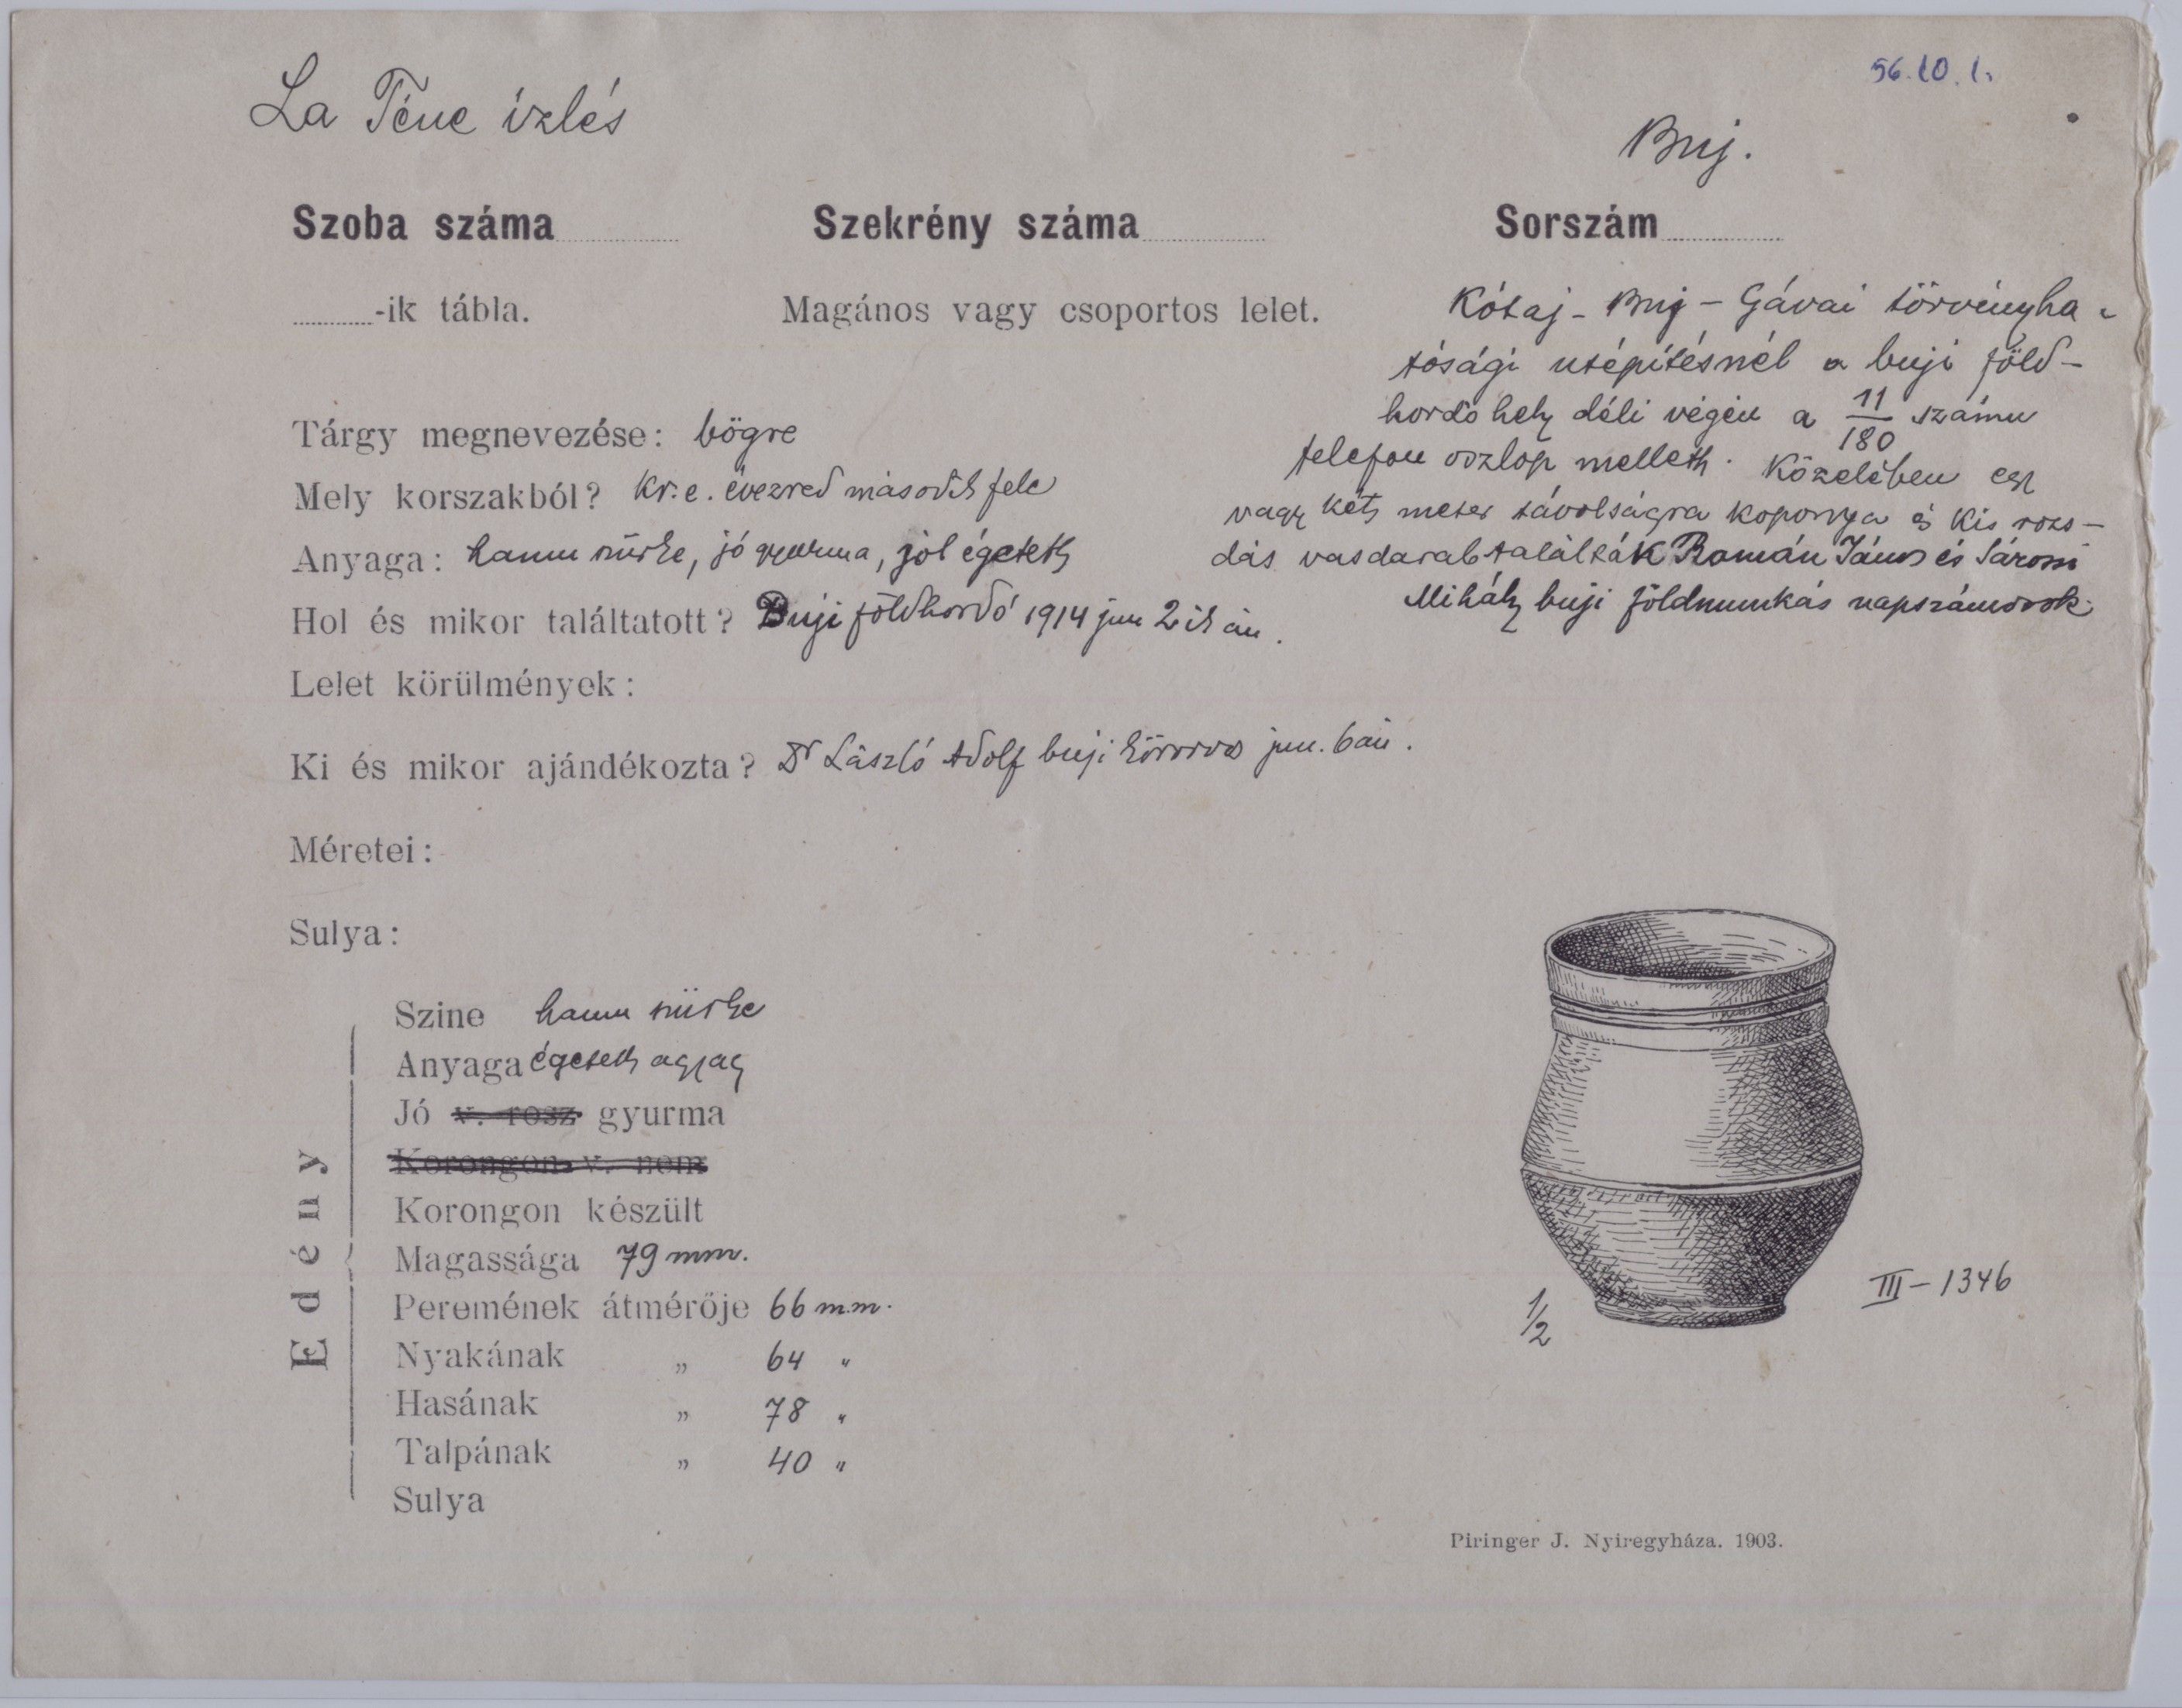 56.10.1.
La Téne izlés
Buj.
Szoba száma
Szekrény száma
Sorszám
-ik tábla.
Magános vagy csoportos lelet.
Kótaj - Buj - Gávai törvényha-
tósági utépitésnél a buji föld-
hordó hely déli végén a 11/180 számu
telefon oszlop mellett. Közelében egy
vagy két meter távolságra koponya és kis rozs-
dás vasdarab találták Román János és Sárosi
Mihály buji földmunkás napszámosok.
Tárgy megnevezése: bögre
Mely korszakból? Kr. e. évezred második fele
Anyaga: hamu szürke, jó gyurma, jól égetett
Hol és mikor találtatott? Buji földhordó 1914 jun 2ik án.
Lelet körülmények:
Ki és mikor ajándékozta? Dr László Adolf buji körorvos jun. 6án.
Méretei:
Sulya:
Edény
Szine hamu szürke
Anyaga égetett agyag
Jó v. rosz gyurma
Korongon v. nem
Korongon készült
Magassága 79 mm.
Peremének átmérője 66 mm.
Nyakának „ 64 "
Hasának „ 78 "
Talpának „ 40 "
Sulya
1/2
III - 1346
Piringer J. Nyiregyháza. 1903.